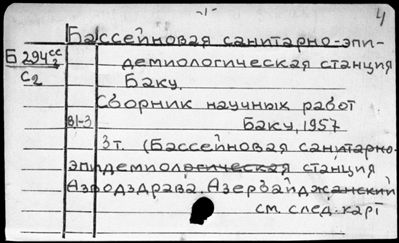 -1-
4
Бассейновая санитарно-эпи-
Б 294сс/2
демиологическая станция
С2
Баку.
Сборник научных работ
В.1-3
Баку, 1957
3т. (Бассейновая санитарно-
эпидемиологическая станция
Азводздрава. Азербайджанский
см. след. карт